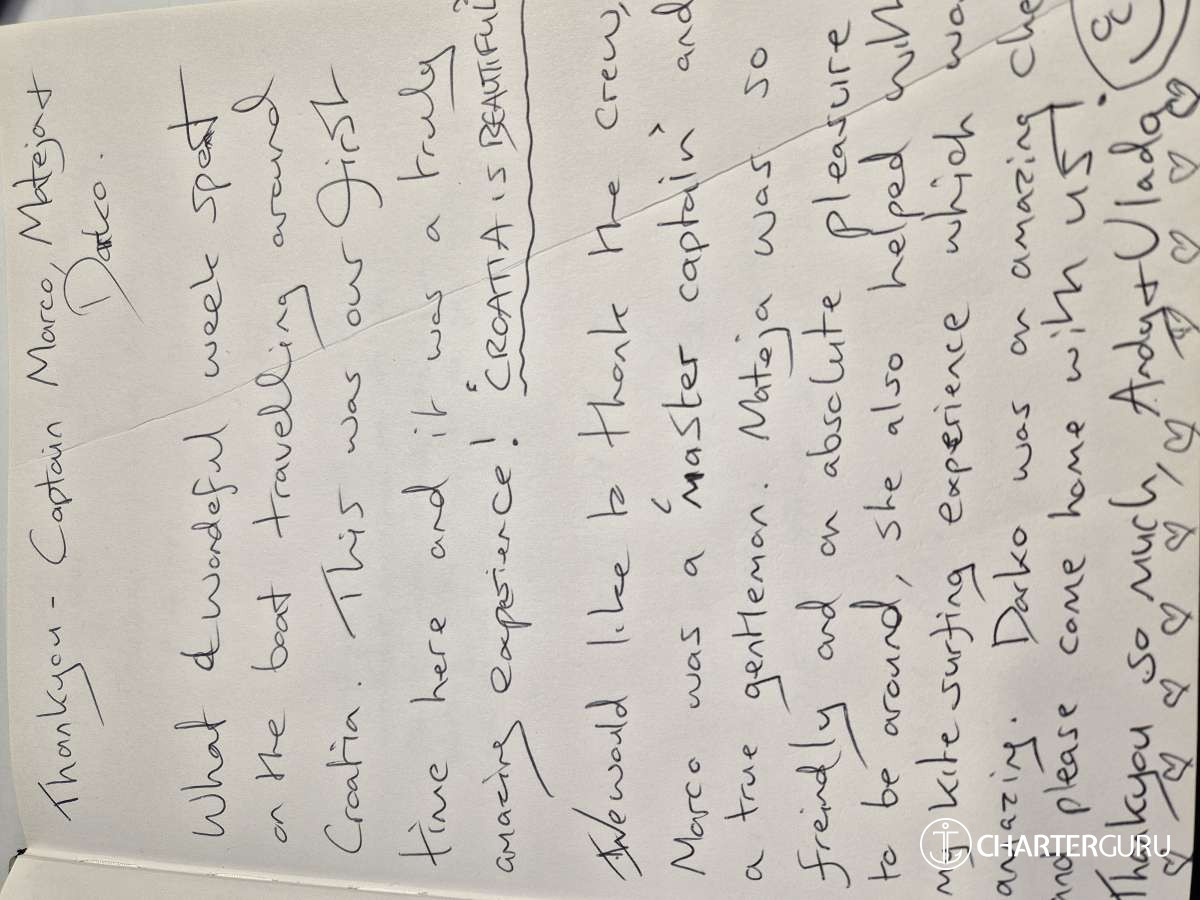 Thankyou - Captain Marco, Mateja +
Darko.
What a wondeful week spent
on the boat travelling around
Croatia. This was our first
time here and it was a truly
amazing experience! "CROATIA IS BEAUTIFUL"
We would like to thank the crew,
Marco was a 'master captain' and
a true gentleman. Mateja was so
freindly and an absolute pleasure
to be around, she also helped with
my kite surfing experience which was
amazing. Darko was an amazing che
and please come home with us!
Thankyou so much, Andy + Vlado
CHARTERGURU